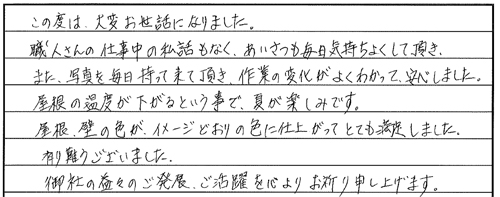 この度は、大変お世話になりました。
職人さんの仕事中の私話もなく、あいさつも毎日気持ちよくして頂き、
また、写真を毎日持って来て頂き、作業の変化がよくわかって、安心しました。
屋根の温度が下がるという事で、夏が楽しみです。
屋根、壁の色が、イメージどおりの色に仕上がってとても満足しました。
有り難うございました。
御社の益々のご発展、ご活躍を心よりお祈り申し上げます。